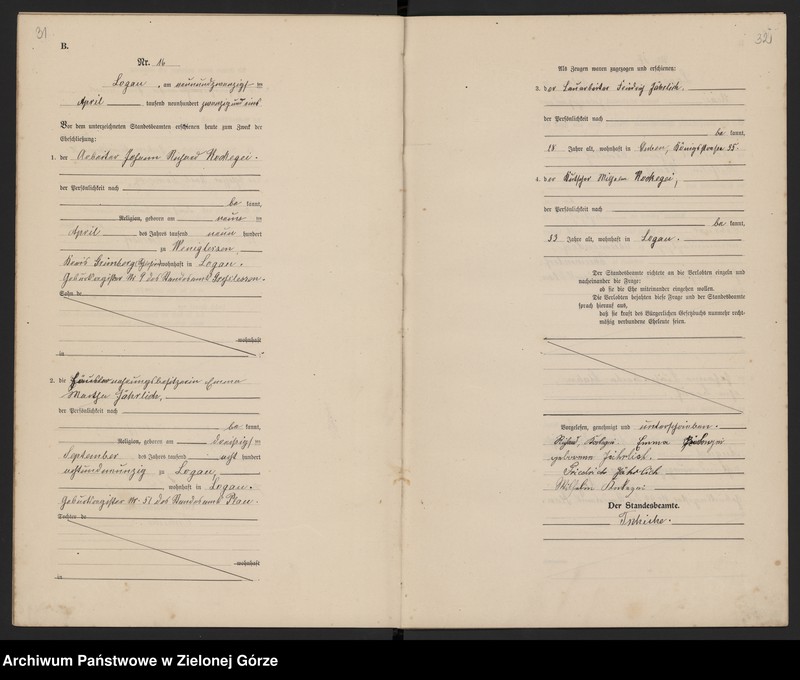 31
B.
Nr. 16
Logau, am neunundzwanzigsten
April tausend neunhundert zwanzig und eins
Vor dem unterzeichneten Standesbeamten erschienen heute zum Zweck der
Eheschließung:
1. der Arbeiter Johann Richard
der Persönlichkeit nach
be kannt,
Religion, geboren am neun ten
April des Jahres tausend neun hundert
zu
Kreis Grünberg wohnhaft in Logau.
Geburtsregister Nr. des Standesamts
Sohn de
wohnhaft
in
2. die Häuslernahrungsbesitzerin Emma
Martha Jährlich,
der Persönlichkeit nach
be kannt,
Religion, geboren am dreißigsten
September des Jahres tausend acht hundert
achtundneunzig zu Logau,
wohnhaft in Logau.
Geburtsregister Nr. 51 des Standesamts Plau.
Tochter de
wohnhaft
in
32
Als Zeugen waren zugezogen und erschienen:
3. der Friedrich Jährlich.
der Persönlichkeit nach
be kannt,
Jahre alt, wohnhaft in Guben, Königstraße 35.
4. der Kutscher Wilhelm
der Persönlichkeit nach
be kannt,
33 Jahre alt, wohnhaft in Logau.
Der Standesbeamte richtete an die Verlobten einzeln und
nacheinander die Frage:
ob sie die Ehe miteinander eingehen wollen.
Die Verlobten bejahten diese Frage und der Standesbeamte
sprach hierauf aus,
daß sie kraft des Bürgerlichen Gesetzbuchs nunmehr recht-
mäßig verbundene Eheleute seien.
Vorgelesen, genehmigt und unterschrieben.
Richard Emma
geborene Jährlich.
Friedrich Jährlich
Wilhelm
Der Standesbeamte.
Archiwum Państwowe w Zielonej Górze